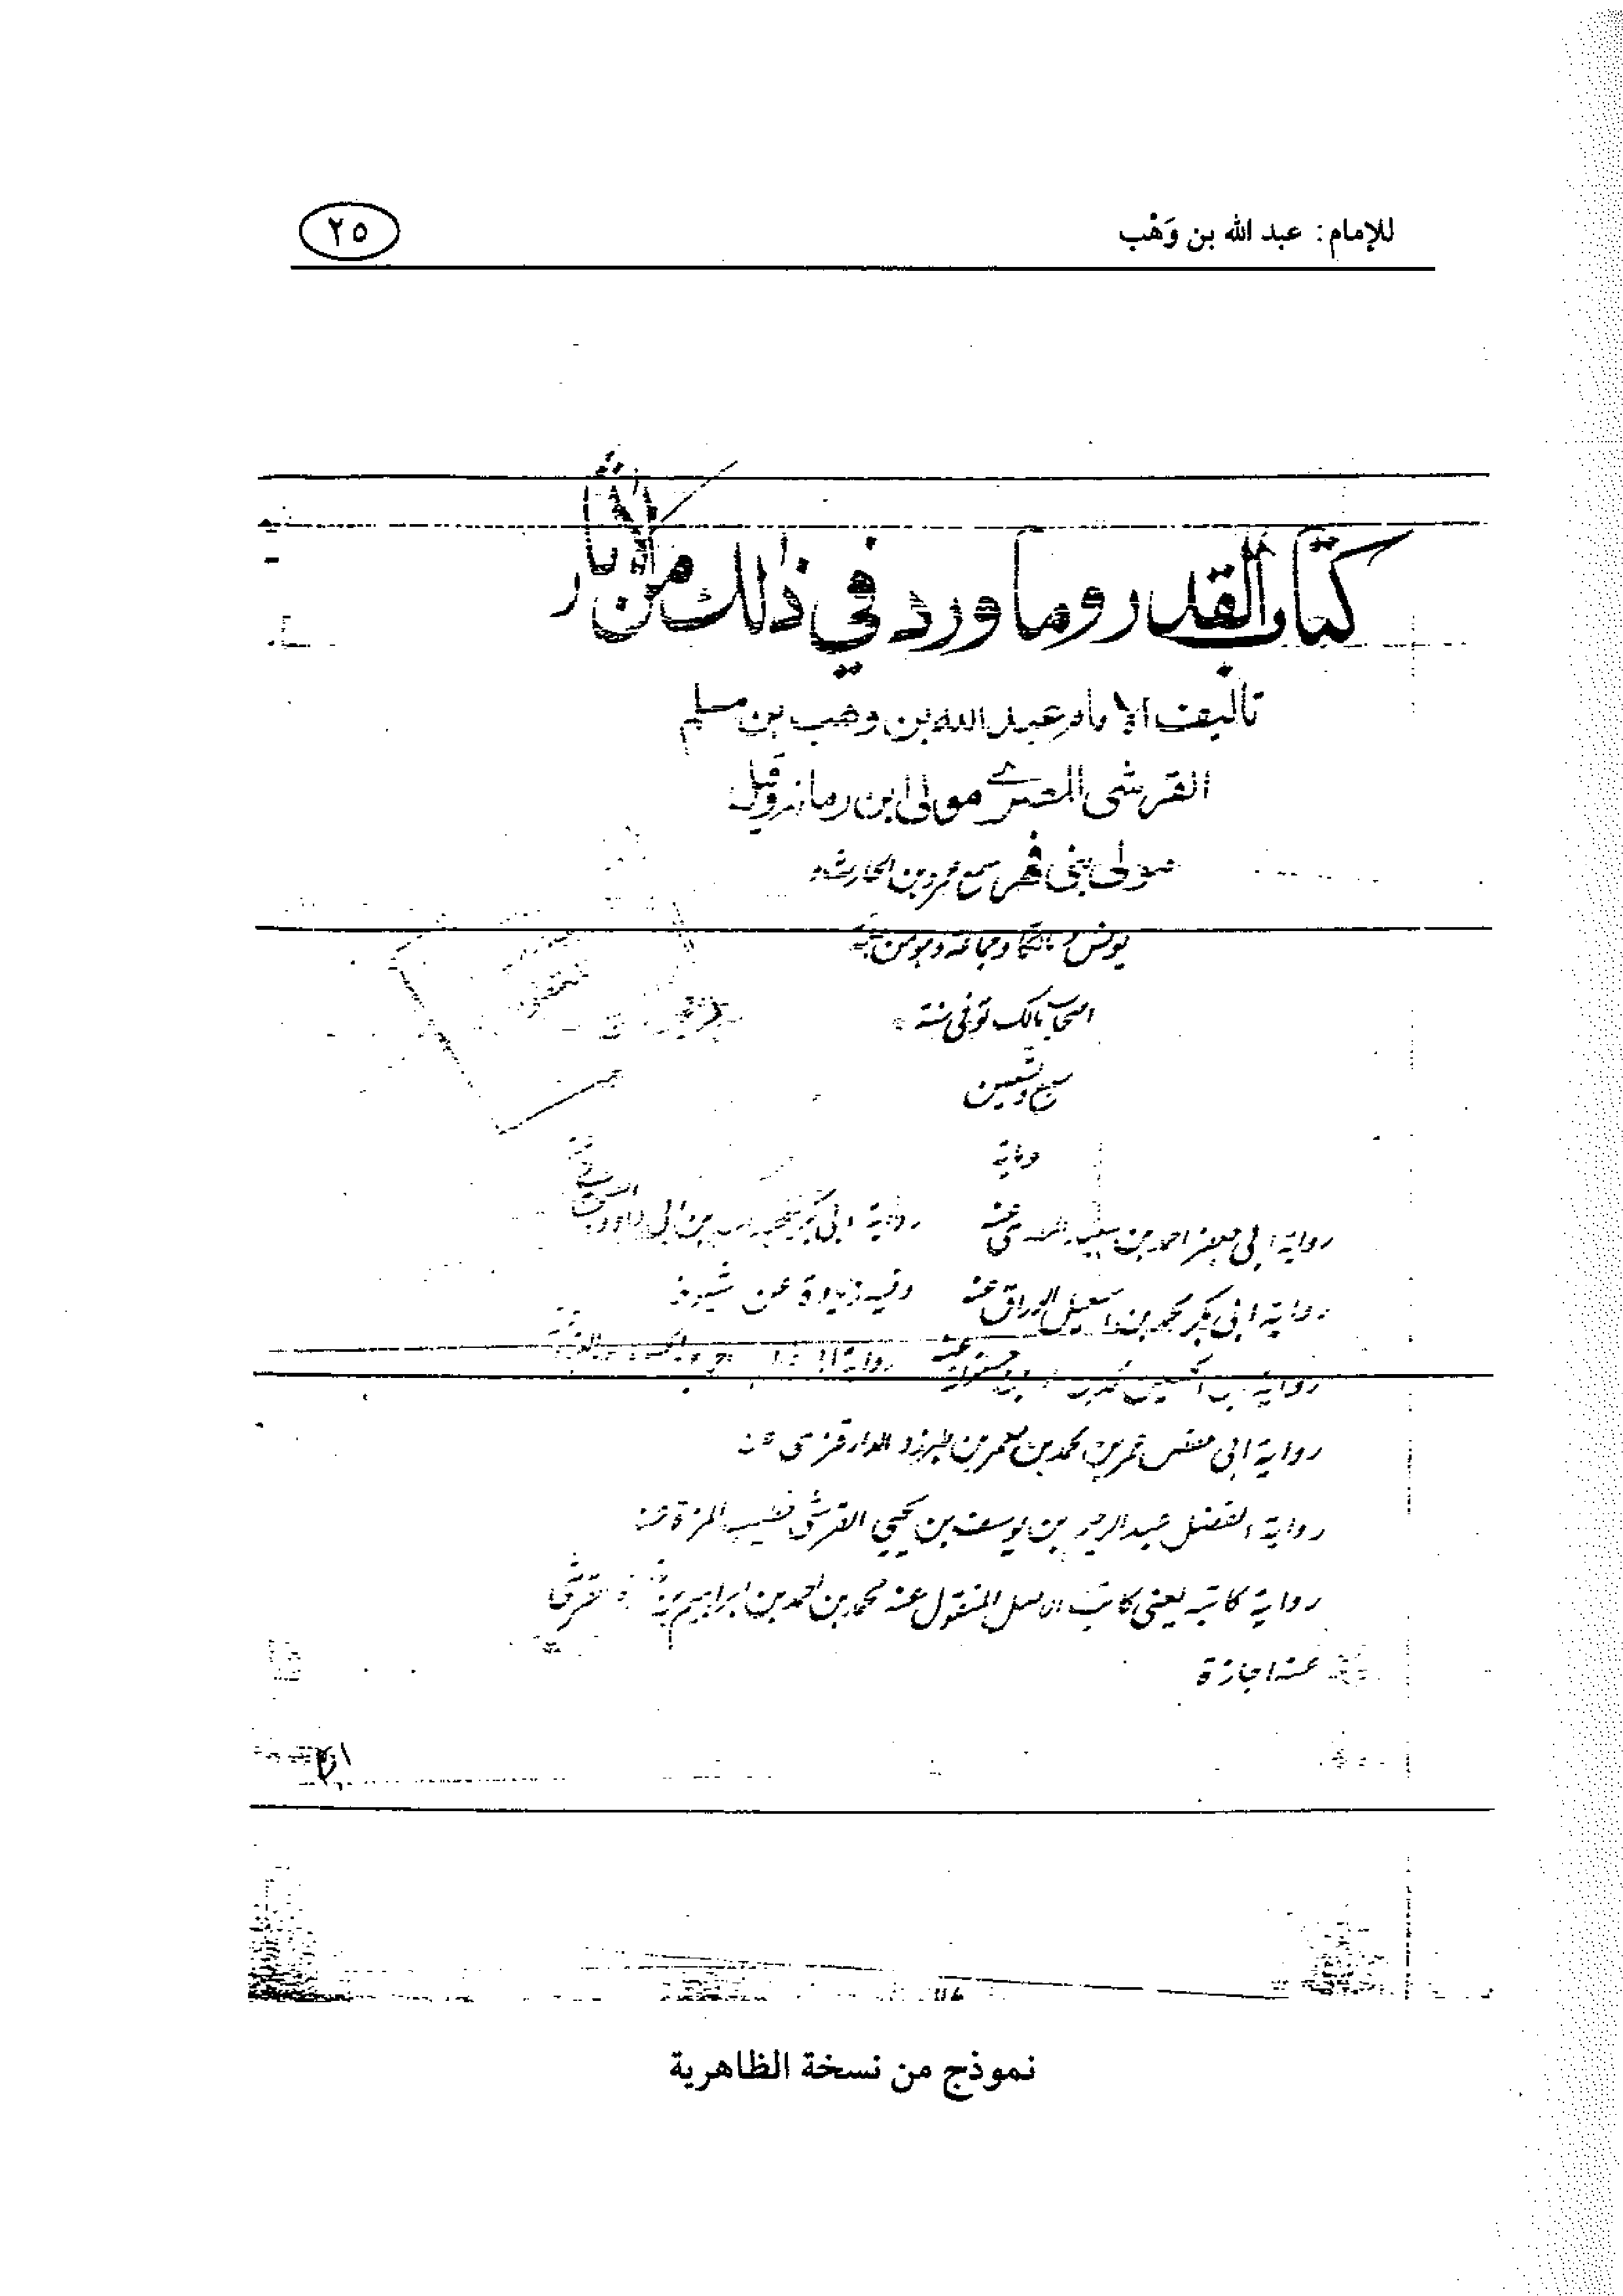 للإمام: عبد الله بن وَهْب
٢٥
كتاب القدر وما ورد في ذلك من الآثار
تأليف الامام عبد الله بن وهب بن مسلم
القرشي المصري مولى ابن رمانه وقيل
مولى بني فهر سمع عمرو بن الحارث و
يونس و مالكا و وهو من
اصحاب مالك توفي سنة
سبع وتسعين
ومائة
رواية ابي جعفر احمد بن سعيد عنه رواية ابي بكر بن ابي داود
رواية ابي بكر محمد بن اسمعيل الوراق عنه وفيه زيادة عن شيوخه
رواية ابي الحسين محمد بن عنه رواية
رواية ابي حفص عمر بن محمد بن معمر بن طبرزد الدارقزي عنه
رواية الفضل عبد الرحيم بن يوسف بن يحيى القرشي خطيب المزة عنه
رواية كاتبه يعني كاتب الاصل المنقول عنه محمد بن احمد بن ابراهيم القرشي
عنه اجازة
نموذج من نسخة الظاهرية